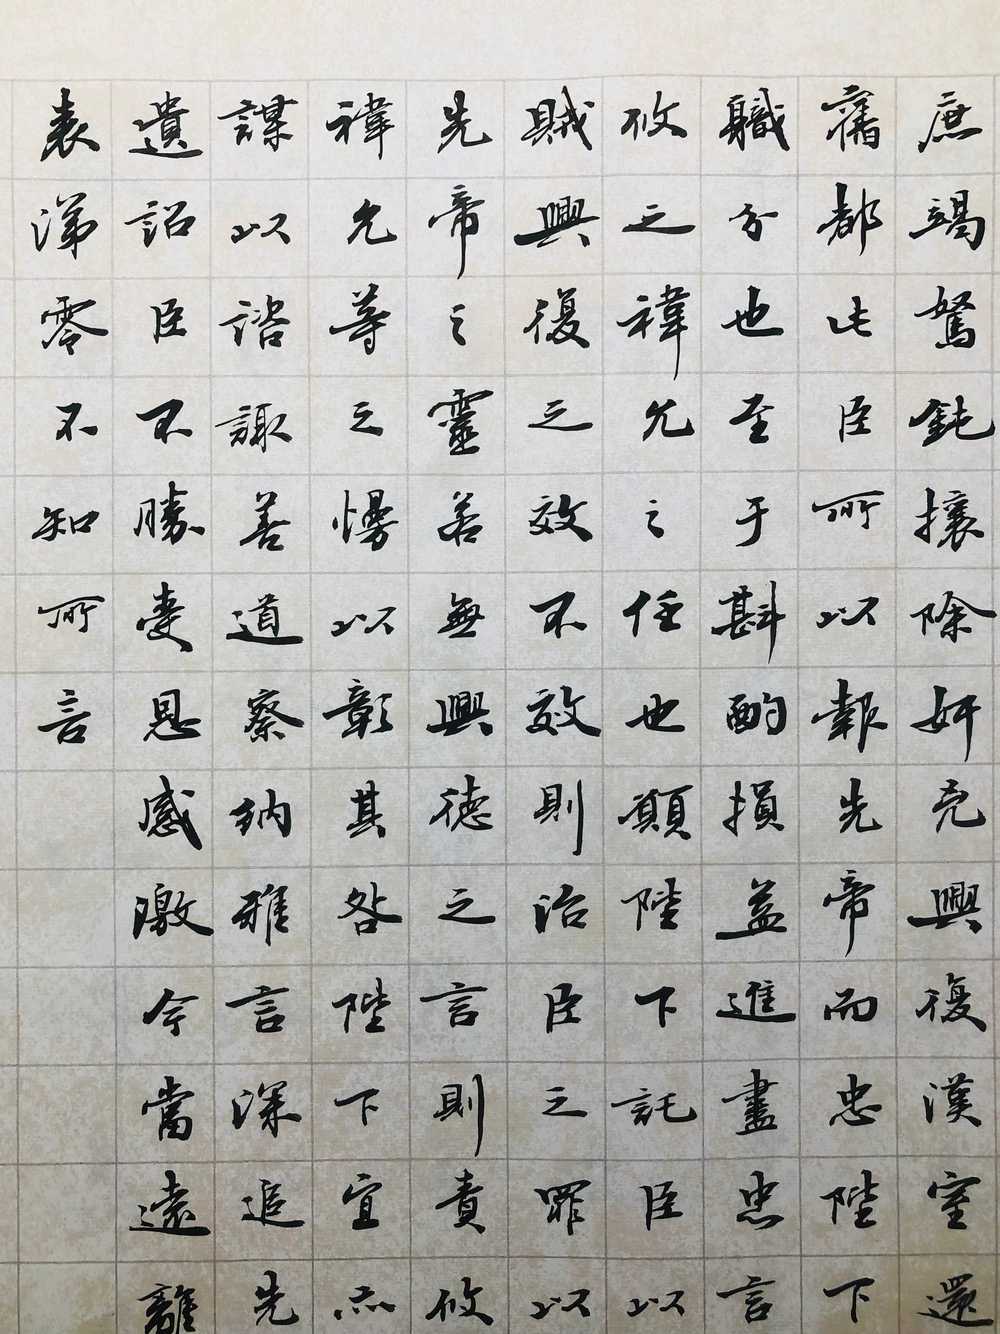 庶竭駑鈍攘除奸兇興復漢室還
舊都此臣所以報先帝而忠陛下
職分也至于斟酌損益進盡忠言
攸之禕允之任也願陛下託臣以
賊興復之效不效則治臣之罪以
先帝之靈若無興德之言則責攸
禕允等之慢以彰其咎陛下宜亦
謀以諮諏善道察納雅言深追先
遺詔臣不勝受恩感激今當遠離
表涕零不知所言